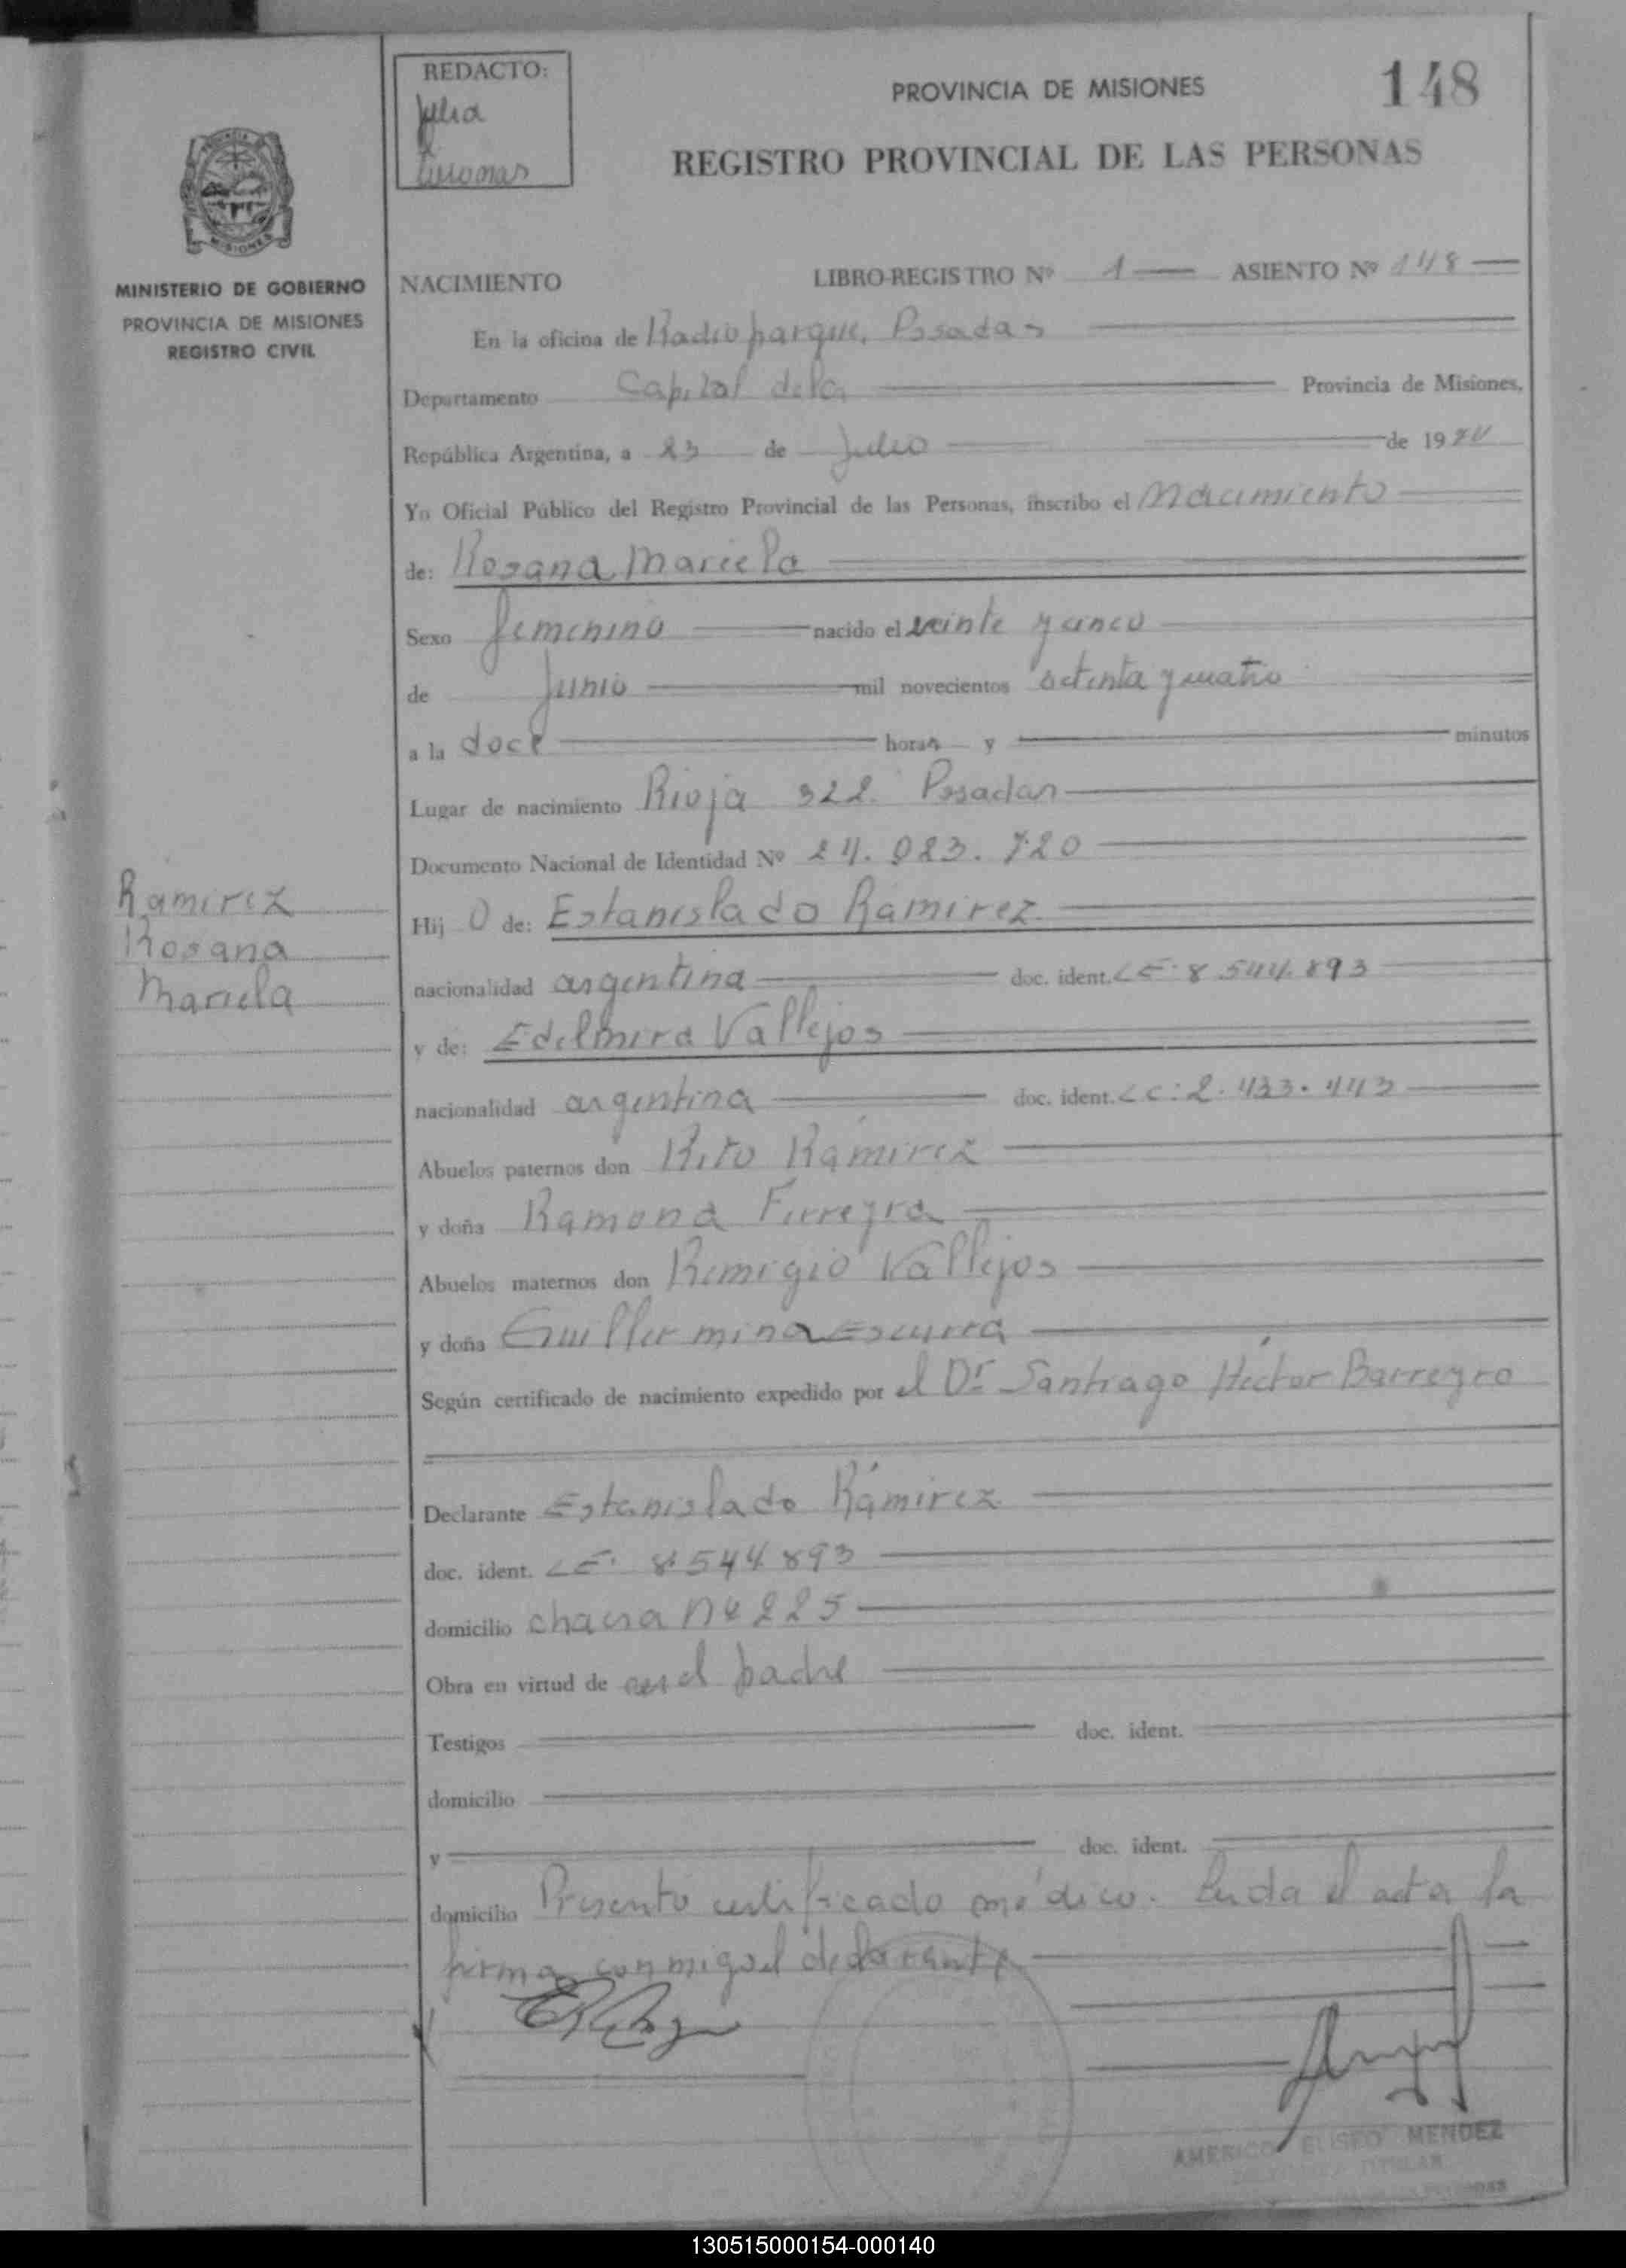 REDACTO:
Julia
PROVINCIA DE MISIONES
148
REGISTRO PROVINCIAL DE LAS PERSONAS
MISIONES
MINISTERIO DE GOBIERNO
PROVINCIA DE MISIONES
REGISTRO CIVIL
NACIMIENTO LIBRO-REGISTRO Nº 1 ASIENTO Nº 148
En la oficina de Radioparque, Posadas
Departamento Capital de la Provincia de Misiones,
República Argentina, a 23 de Julio de 1974
Yo Oficial Público del Registro Provincial de las Personas, inscribo el Nacimiento
de: Rosana Mariela
Sexo femenino nacido el veinte y cinco
de Junio mil novecientos setenta y cuatro
a la doce horas y minutos
Lugar de nacimiento Rioja 322. Posadas
Documento Nacional de Identidad Nº 24.023.720
Ramirez
Rosana
Mariela
Hij o de: Estanislado Ramirez
nacionalidad argentina doc. ident. LE: 8.544.893
y de: Edelmira Vallejos
nacionalidad argentina doc. ident. LC: 2.433.443
Abuelos paternos don Rito Ramirez
y doña Ramona Ferreyra
Abuelos maternos don Remigio Vallejos
y doña Guillermina Escurra
Según certificado de nacimiento expedido por el Dr Santiago Hector Barreyro
Declarante Estanislado Ramirez
doc. ident. LE: 8.544.893
domicilio chacra Nº 225
Obra en virtud de ser el padre
Testigos doc. ident.
domicilio
y doc. ident.
domicilio Presentó certificado médico. Leida el acta la
firma conmigo el declarante
AMERICO ELISEO MENDEZ
TITULAR
130515000154-000140